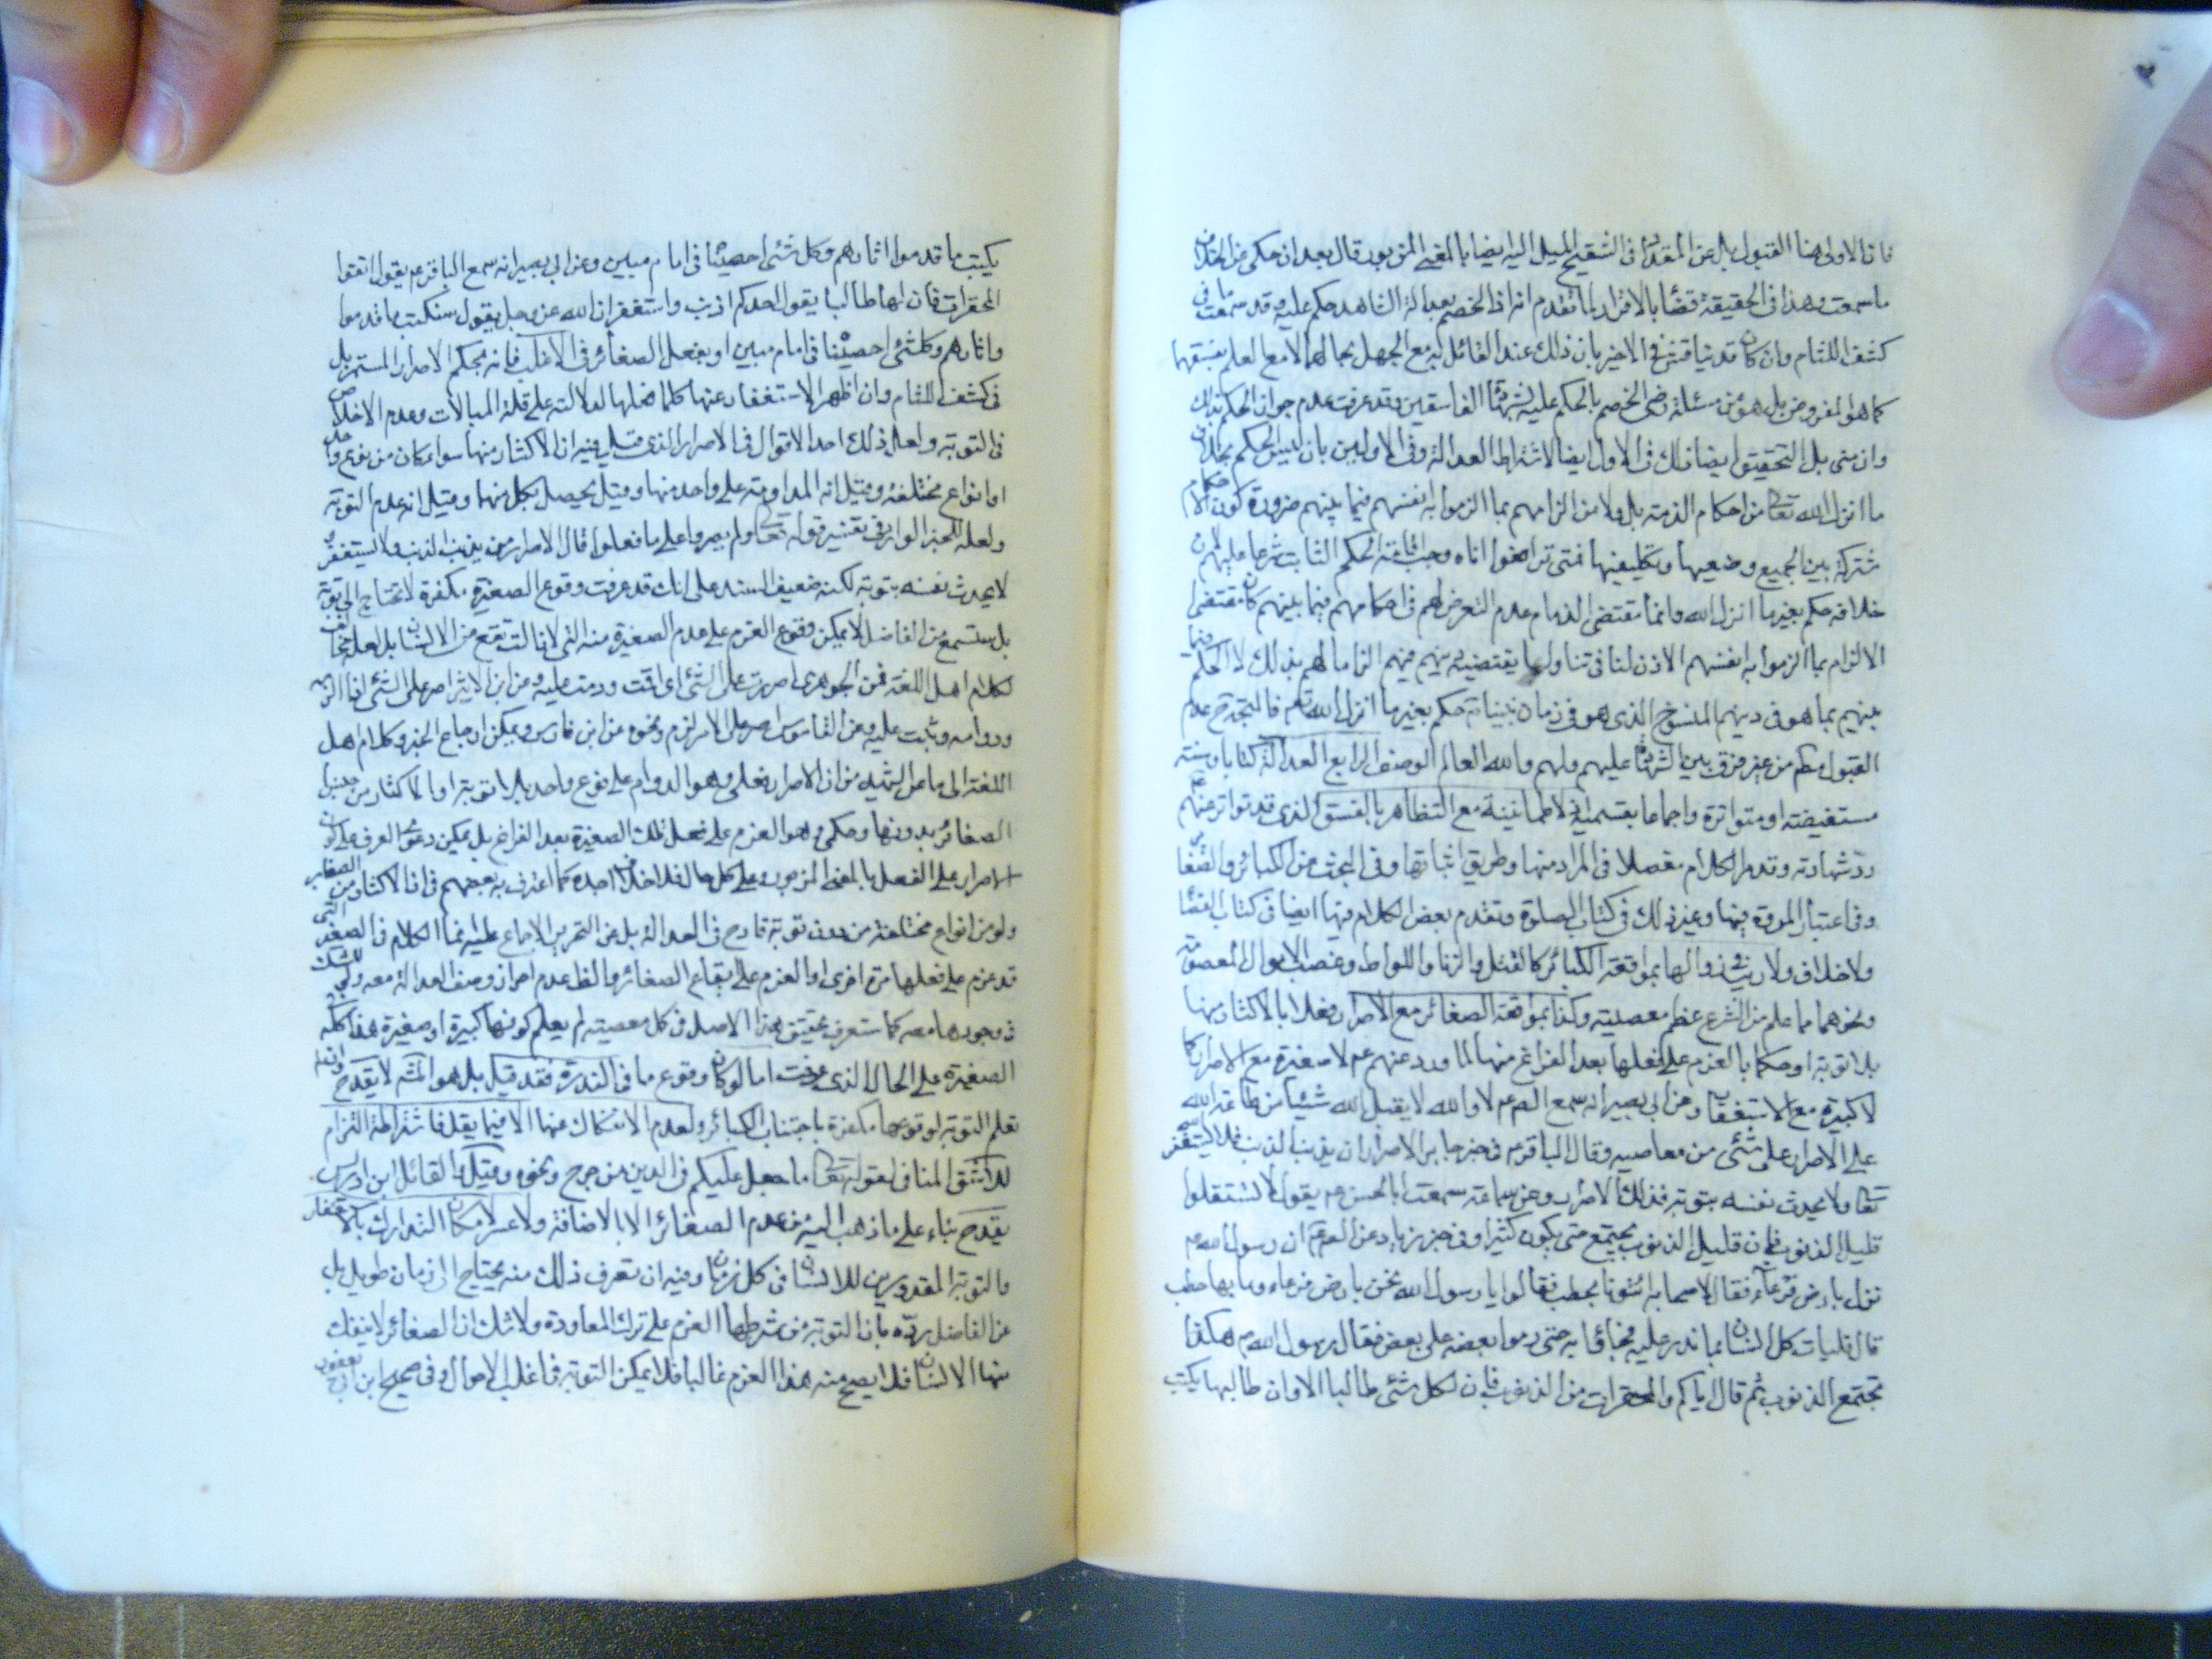 فانا الاولى هنا القبول بل عن المقداد في التنقيح الميل اليه ايضا بالمعنى المزبور قال بعد ان حكى عن الخلاف
ما سمعت وهذا في الحقيقة قضا بالاقرار لما تقدم انه اذا الخصم بعدالة الشاهد حكم عليه وقد سمعت ما في
كشف اللثام وان كان قد يناقش في الاخير بان ذلك عند القائل به مع الجهل بحالهما لا مع العلم بفسقهما
كما هو المفروض بل هو من مسئلة رضى الخصم بالحكم عليه بشهادة الفاسقين وقد عرفت عدم جواز الحكم بذلك
وان رضى بل التحقيق ايضا ذلك في الاول ايضا لاشتراط العدالة وفي الاوليين بان ليس الحكم بخلاف
ما انزل الله تعالى من احكام الذمة بل ولا من الزامهم بما الزموا به انفسهم فيما بينهم ضرورة كون الاحكام
مشتركة بين الجميع وضعيها وتكليفيها فمتى ترافعوا الينا وجب اقامة الحكم الثابت شرعا عليهم لان
خلافه حكم بغير ما انزل الله وانما مقتضى الذمام عدم التعرض لهم في احكامهم فيما بينهم كما ان مقتضى
الالزام بما الزموا به انفسهم الاذن لنا في تناول ما يقتضيه دينهم فيهم الزاما لهم بذلك لا الحكم فيما
بينهم بما هو في دينهم المنسوخ الذي هو في زمان نبينا حكم بغير ما انزل الله تعم فالمتجه ح عدم
القبول مطم من غير فرق بين الشهادة عليهم ولهم والله العالم الوصف الرابع العدالة كتابا وسنة
مستفيضة او متواترة واجماعا بقسميه اذ لا طمانينة مع التظاهر بالفسق الذي قد تواتر عنهم عم
رد شهادته وقد مر الكلام مفصلا في المراد منها وطريق اثباتها وفي البحث عن الكبائر والصغاير
وفي اعتبار المروة فيها وغير ذلك في كتاب الصلوة وتقدم بعض الكلام فيها ايضا في كتاب القضا
ولا خلاف ولا ريب في زوالها بمواقعة الكبائر كالقتل والزنا واللواط وغصب الاموال المعصومة
ونحوهما مما علم من الشرع عظم معصيته وكذا بمواقعة الصغائر مع الاصرار فعلا بالاكثار منها
بلا توبة او حكما بالعزم على فعلها بعد الفراغ منها لما ورد عنهم عم لا صغيرة مع الاصرار كما
لا كبيرة مع الاستغفار وعن ابي بصير انه سمع الصم عم لا والله لا يقبل الله شيئا من طاعته
على الاصرار على شئ من معاصيه وقال الباقر عم في خبر جابر الاصرار ان يذنب الذنب فلا يستغفر الله
تعالى ولا يحدث نفسه بتوبة فذلك الاصرار وعن سماعة سمعت ابا الحسن عم يقول لا تستقلوا
قليل الذنوب فان قليل الذنوب يجتمع حتى يكون كثيرا وفي خبر زياد عن الصم عم ان رسول الله ص
نزل بارض قرعاء فقال لاصحابه ائتونا بحطب فقالوا يا رسول الله نحن بارض قرعاء وما بها حطب
قال فليات كل انسان بما قدر عليه فجاؤا به حتى رموا بعضه على بعض فقال رسول الله ص هكذا
تجتمع الذنوب ثم قال اياكم والمحقرات من الذنوب فان لكل شئ طالبا الا وان طالبها يكتب
يكتب ما قدموا اثارهم وكل شئ احصيناه في امام مبين وعن ابي بصير انه سمع الباقر عم يقول اتقوا
المحقرات فان لها طالبا يقول احدكم اذنب واستغفر ان الله عز وجل يقول سنكتب ما قدموا
واثارهم وكل شئ احصيناه في امام مبين او بفعل الصغائر في الاغلب فانه بحكم الاصرار المستمر بل
في كشف اللثام وان اظهر الاستغفار عنها كلما فعلها لدلالته على قلة المبالات وعدم الاخلاص
في التوبة ولعل ذلك احد الاقوال في الاصرار الذي قيل فيه ان الاكثار منها سواء كان من نوع واحد
او انواع مختلفة وقيل انه المداومة على واحد منها وقيل يحصل بكل منها وقيل انه عدم التوبة
ولعله للخبر الوارد في تفسير قوله تعالى ولم يصروا على ما فعلوا قال الاصرار من يذنب الذنب ولا يستغفر و
لا يحدث نفسه بتوبة لكنه ضعيف السند على انك قد عرفت وقوع الصغيرة مكفرة لا تحتاج الى توبة
بل ستسمع من الفاضل لا يمكن وقوع العزم على عدم الصغيرة منه التي لا زالت تقع من الانسان بل لعله مخالف
لكلام اهل اللغة فعن الجوهري اصررت على الشئ اي اقمت ودمت عليه وعن ابن الاثير اصر على الشئ اذا الزمه
ودوامه وثبت عليه وعن القاموس اصر على الامر لزم ونحوه عن ابن فارس ويمكن ارجاع الخبر وكلام اهل
اللغة الى ما عن الشهيد من ان الاصرار فعلي وهو الدوام على نوع واحد بلا توبة او الاكثار من جنس
الصغائر بدونها وحكمي وهو العزم على فعل تلك الصغيرة بعد الفراغ بل يمكن دعوى العرف على كون
الاصرار على الفعل بالمعنى المزبور وعلى كل حال فلا خلاف اجده كما اعترف به بعضهم في ان الاكثار من الصغاير
ولو من انواع مختلفة من دون توبة قادح في العدالة بل عن التحرير الاجماع عليه انما الكلام في الصغيرة التي
قد عزم على فعلها مرة اخرى او العزم على ايقاع الصغائر والظ عدم احراز وصف العدالة معه ولو للشك
في وجودها معه كما ستعرف تحقيق هذا الاصل في كل معصيته لم يعلم كونها كبيرة او صغيرة هذا كله
الصغيرة على الحال الذي عرفت اما لو كان وقوع ما في الندرة فقد قيل بل هو المشم لا يقدح وان لم
تعلم التوبة لوقوعها مكفرة باجتناب الكبائر ولعدم الانفكاك عنها الا فيما يقل فاشتراطه التزام
للاشق المنافي لقوله تعالى ما جعل عليكم في الدين من حرج ونحوه وقيل والقائل ابن ادريس
يقدح بناء على ما ذهب اليه من عدم الصغائر الا بالاضافة ولا عسر لامكان التدارك بالاستغفار
والتوبة المقدورين للانسان في كل زمان وفيه ان تعرف ذلك منه يحتاج الى زمان طويل بل
عن الفاضل رده بان التوبة من شرطها العزم على ترك المعاودة ولا شك ان الصغائر لا ينفك
منها الانسان فلا يصح منه هذا العزم غالبا فلا يمكن التوبة في اغلب الاحوال وفي صحيح ابن ابي يعفور